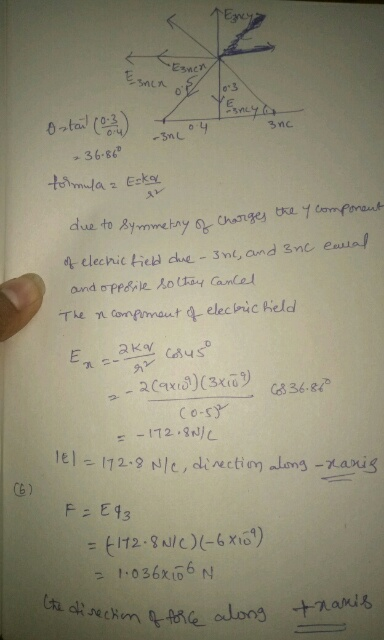 E3ncy
E3ncx
E-3ncx
0.5
0.3
E-3ncy
θ = tan⁻¹ (0.3/0.4)
-3nC 0.4 3nC
= 36.86°
formula = E = kq/r²
due to symmetry of charges the y component
of electric field due -3nc, and 3nc equal
and opposite so they cancel
The x component of electric field
Ex = - 2kq/r² Cos45°
= - 2(9x10⁹)(3x10⁻⁹)/(0.5)² Cos 36.86°
= -172.8 N/C
|E| = 172.8 N/C, direction along -x axis
(b)
F = Eq3
= (-172.8 N/C)(-6x10⁻⁹)
= 1.036x10⁻⁶ N
the direction of force along +x axis